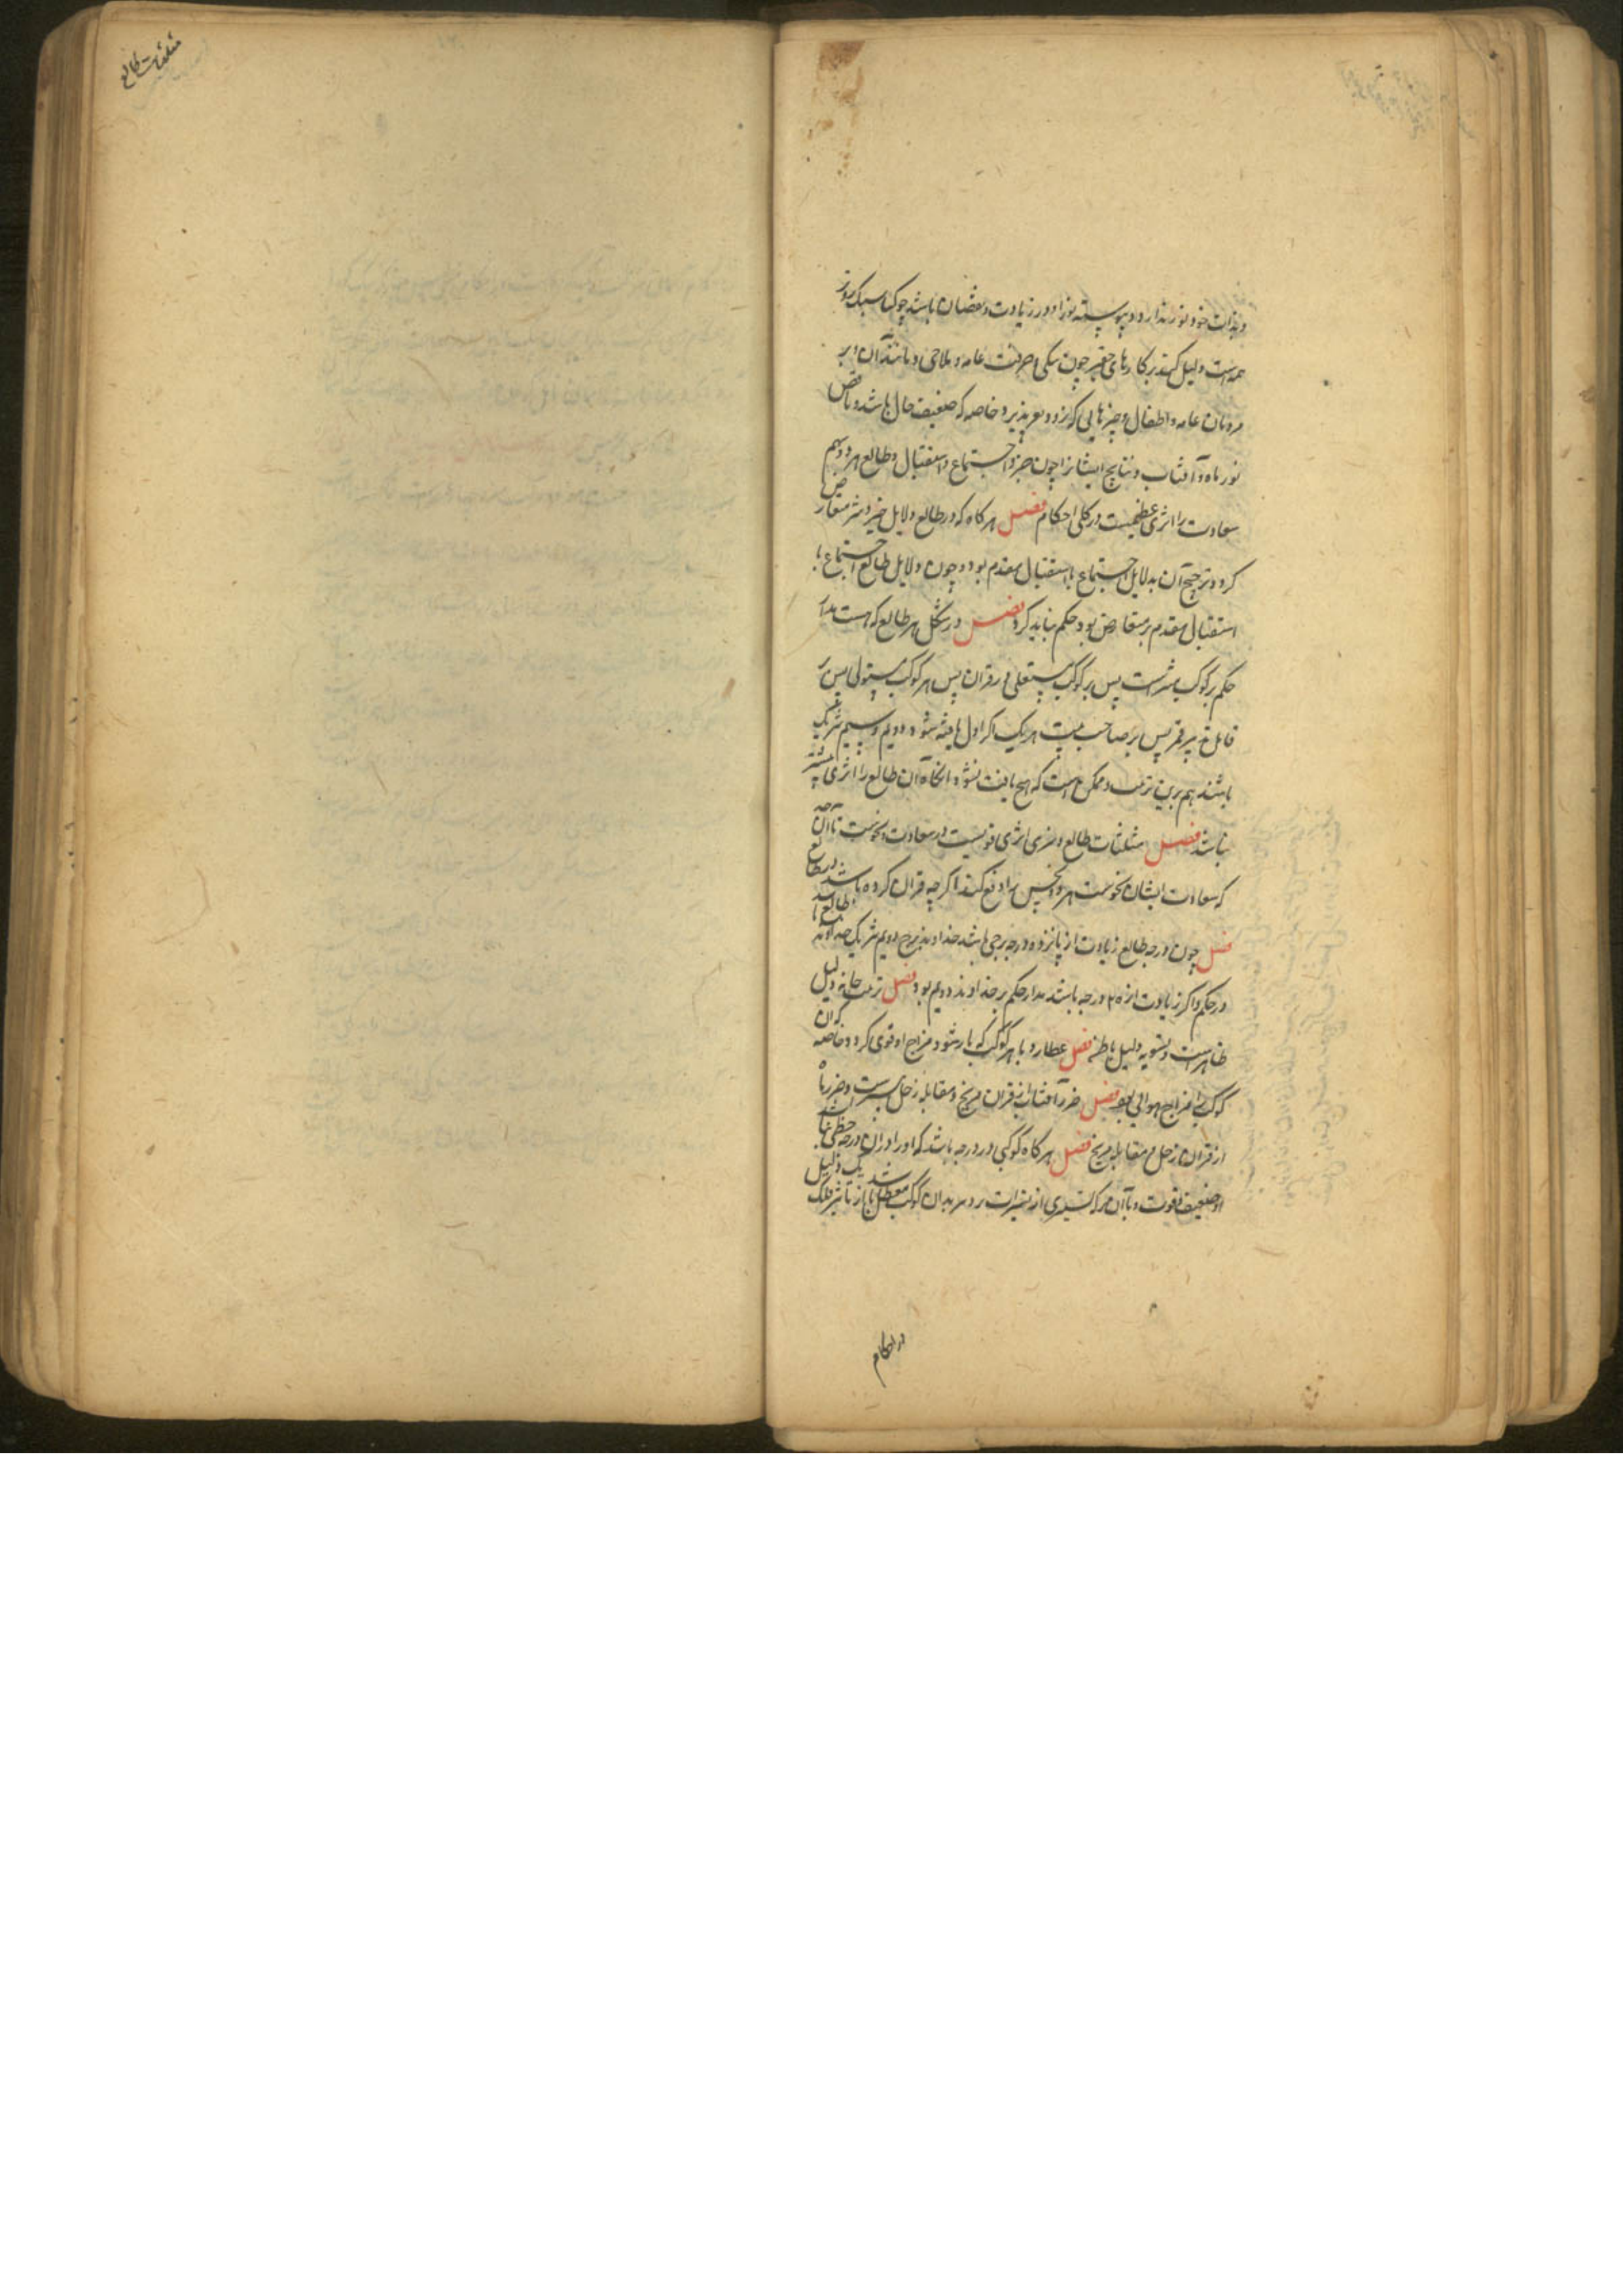 و بذات خود نور ندارد و پیوسته نور او در زیادت و نقصان باشد چو کتا سبک روتر
همه است دلیل کنند بر کارهای حقیر چون سکی حرفت عامه و ملاحی و مانند آن و بر
مردمان عامه و اطفال و چیزهایی که زود تغیر پذیرد خاصه که ضعیف حال باشد و ناقص
نور ماه و آفتاب و نتایج ایشانرا چون جزو اجتماع و استقبال و طالع هر دو و سهم
سعادت را اثری عظیمست در کلی احکام فصل هر کاه که در طالع دلایل خیر و شر متعارض
کردد ترجیح آن بدلایل اجتماع یا استقبال مقدم بود و چون دلایل طالع اجتماع یا
استقبال مقدم بر متعارض بود حکم نباید کرد فصل در شکل هر طالع که هست مدار
حکم بر کوکب مبتزست پس بر کوکب مستعلی در قران پس هر کوکب مستولی پس بر
قابل تدبیر قمر پس بر صاحب بیت هر یک اکر اول یافته شود و دویم و سیم شریک
باشند هم برین ترتیب و ممکن است که هیچ یافت نشود انکاه آن طالع را اثری
نباشد فصل مثلثات طالع و نیری اثری قویست در سعادت و نحوست تا آن حد
که سعادت ایشان نحوست هر دو نحس را دفع کند اکر چه قران کرده باشد در طالع
فصل چون درجه طالع زیادت از پانزده درجه برجی باشد خداوند برج دویم شریک خداوند طالع باشد
در حکم و اکر زیادت از ۲۵ درجه باشد مدار حکم بر خداوند دویم بود فصل ترتیب خانه دلیل
ظاهرست و تسویه دلیل باطن فصل عطارد با هر کوکب که یار شود مزاج او قوی کردد خاصه که آن
کوکب را مزاج هوایی بود فصل ضرر آفتاب از قران مریخ و مقابله زحل بترست و ضرر ماه
از قران زحل و مقابله مریخ فصل هر کاه کوکبی در درجه باشد که او را در آن درجه حظی نباشد
او ضعیف قوت و با آن هر که تسییری از تسییرات رسد بدان کوکب معطل باشد از تاثیر فلک
در احکام
مثلثات طالع